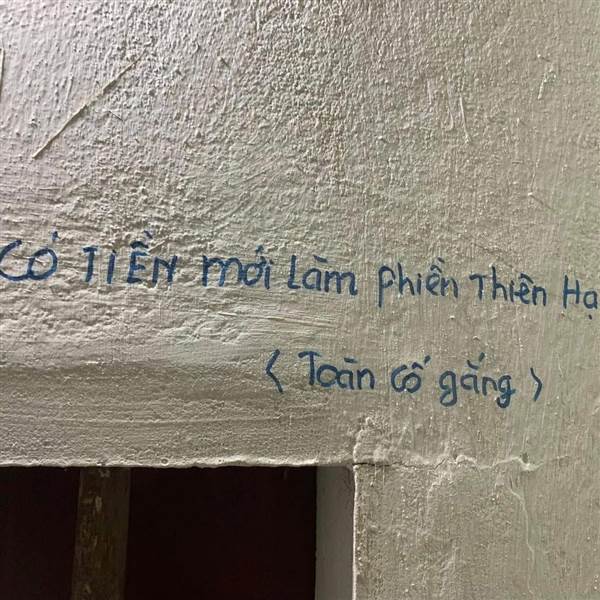 CÓ TIỀN mới Làm phiền Thiên Hạ
< Toàn cố gắng >